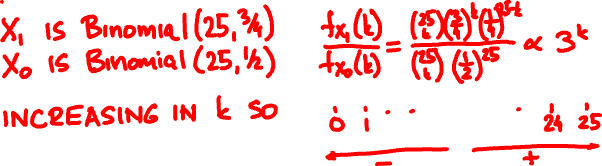 X₁ IS BINOMIAL(25, 3/4)
X₀ IS BINOMIAL(25, 1/2)
f_{X₁}(k) / f_{X₀}(k) = (25 k)(3/4)^k(1/4)^{25-k} / (25 k)(1/2)^{25} ∝ 3^k
INCREASING IN k SO
0 1 · · · 24 25
− +